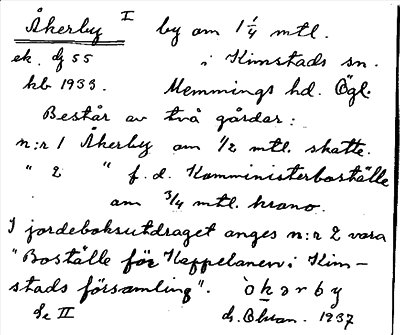 Åkerby I by om 1 1/4 mtl.
ek. bl 55 i Kimstads sn.
kb 1933. Memmings hd. Ögl.
Består av två gårdar:
n:r 1 Åkerby om 1/2 mtl. skatte.
" 2 " f. d. Komministerboställe
om 3/4 mtl. krono.
I jordeboksutdraget anges n:r 2 vara
"Boställe för Kappelanen i Kim-
stads församling". òkərby
Se II 1937